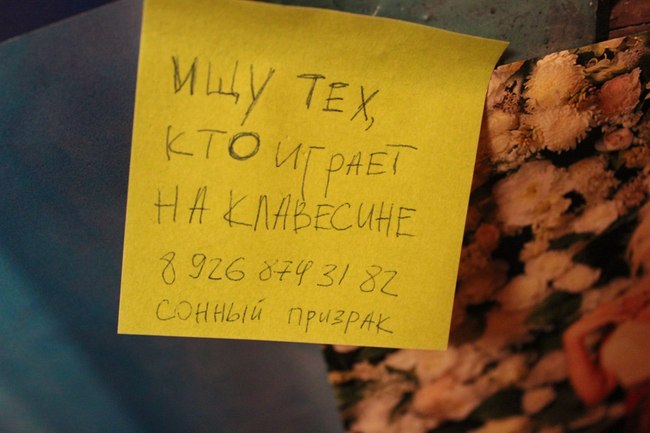 ИЩУ ТЕХ,
КТО ИГРАЕТ
НА КЛАВЕСИНЕ
8 926 874 31 82
СОННЫЙ ПРИЗРАК